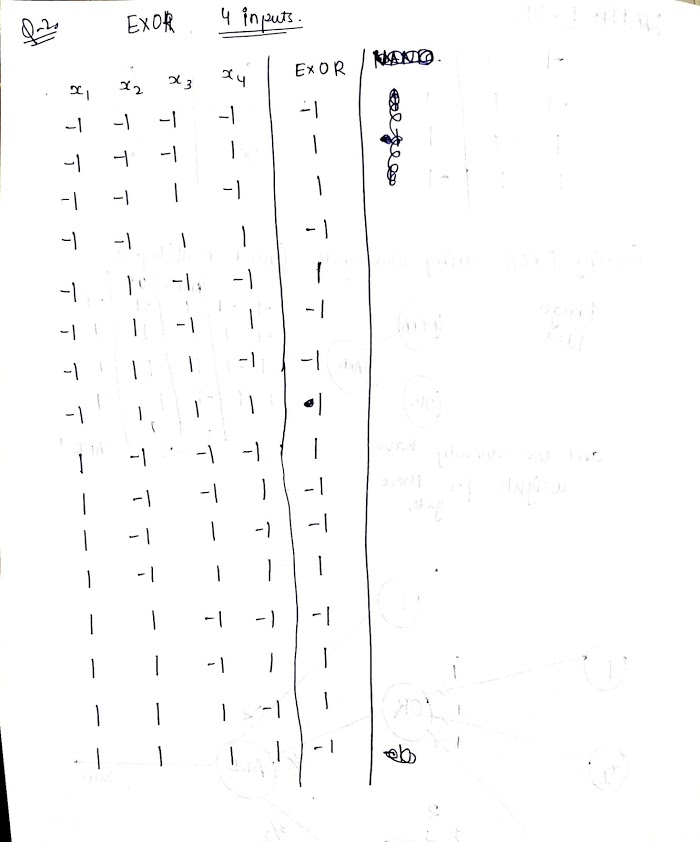 Q-2. EXOR 4 inputs.
x1 x2 x3 x4 EXOR
-1 -1 -1 -1 -1
-1 -1 -1 1 1
-1 -1 1 -1 1
-1 -1 1 1 -1
-1 1 -1 -1 1
-1 1 -1 1 -1
-1 1 1 -1 -1
-1 1 1 1 1
1 -1 -1 -1 1
1 -1 -1 1 -1
1 -1 1 -1 -1
1 -1 1 1 1
1 1 -1 -1 -1
1 1 -1 1 1
1 1 1 -1 1
1 1 1 1 -1